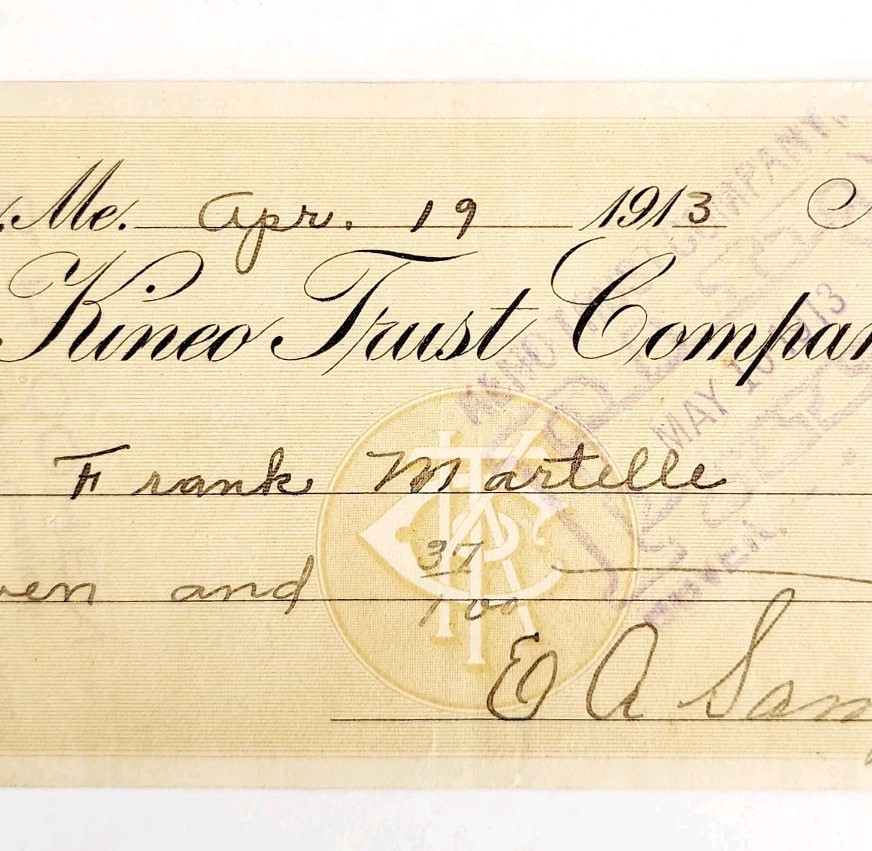 Me. Apr. 19 1913
Kineo Trust Compan
Frank Martelle
ven and 37/100
E A Sam
COMPANY,
MAY 10 1913